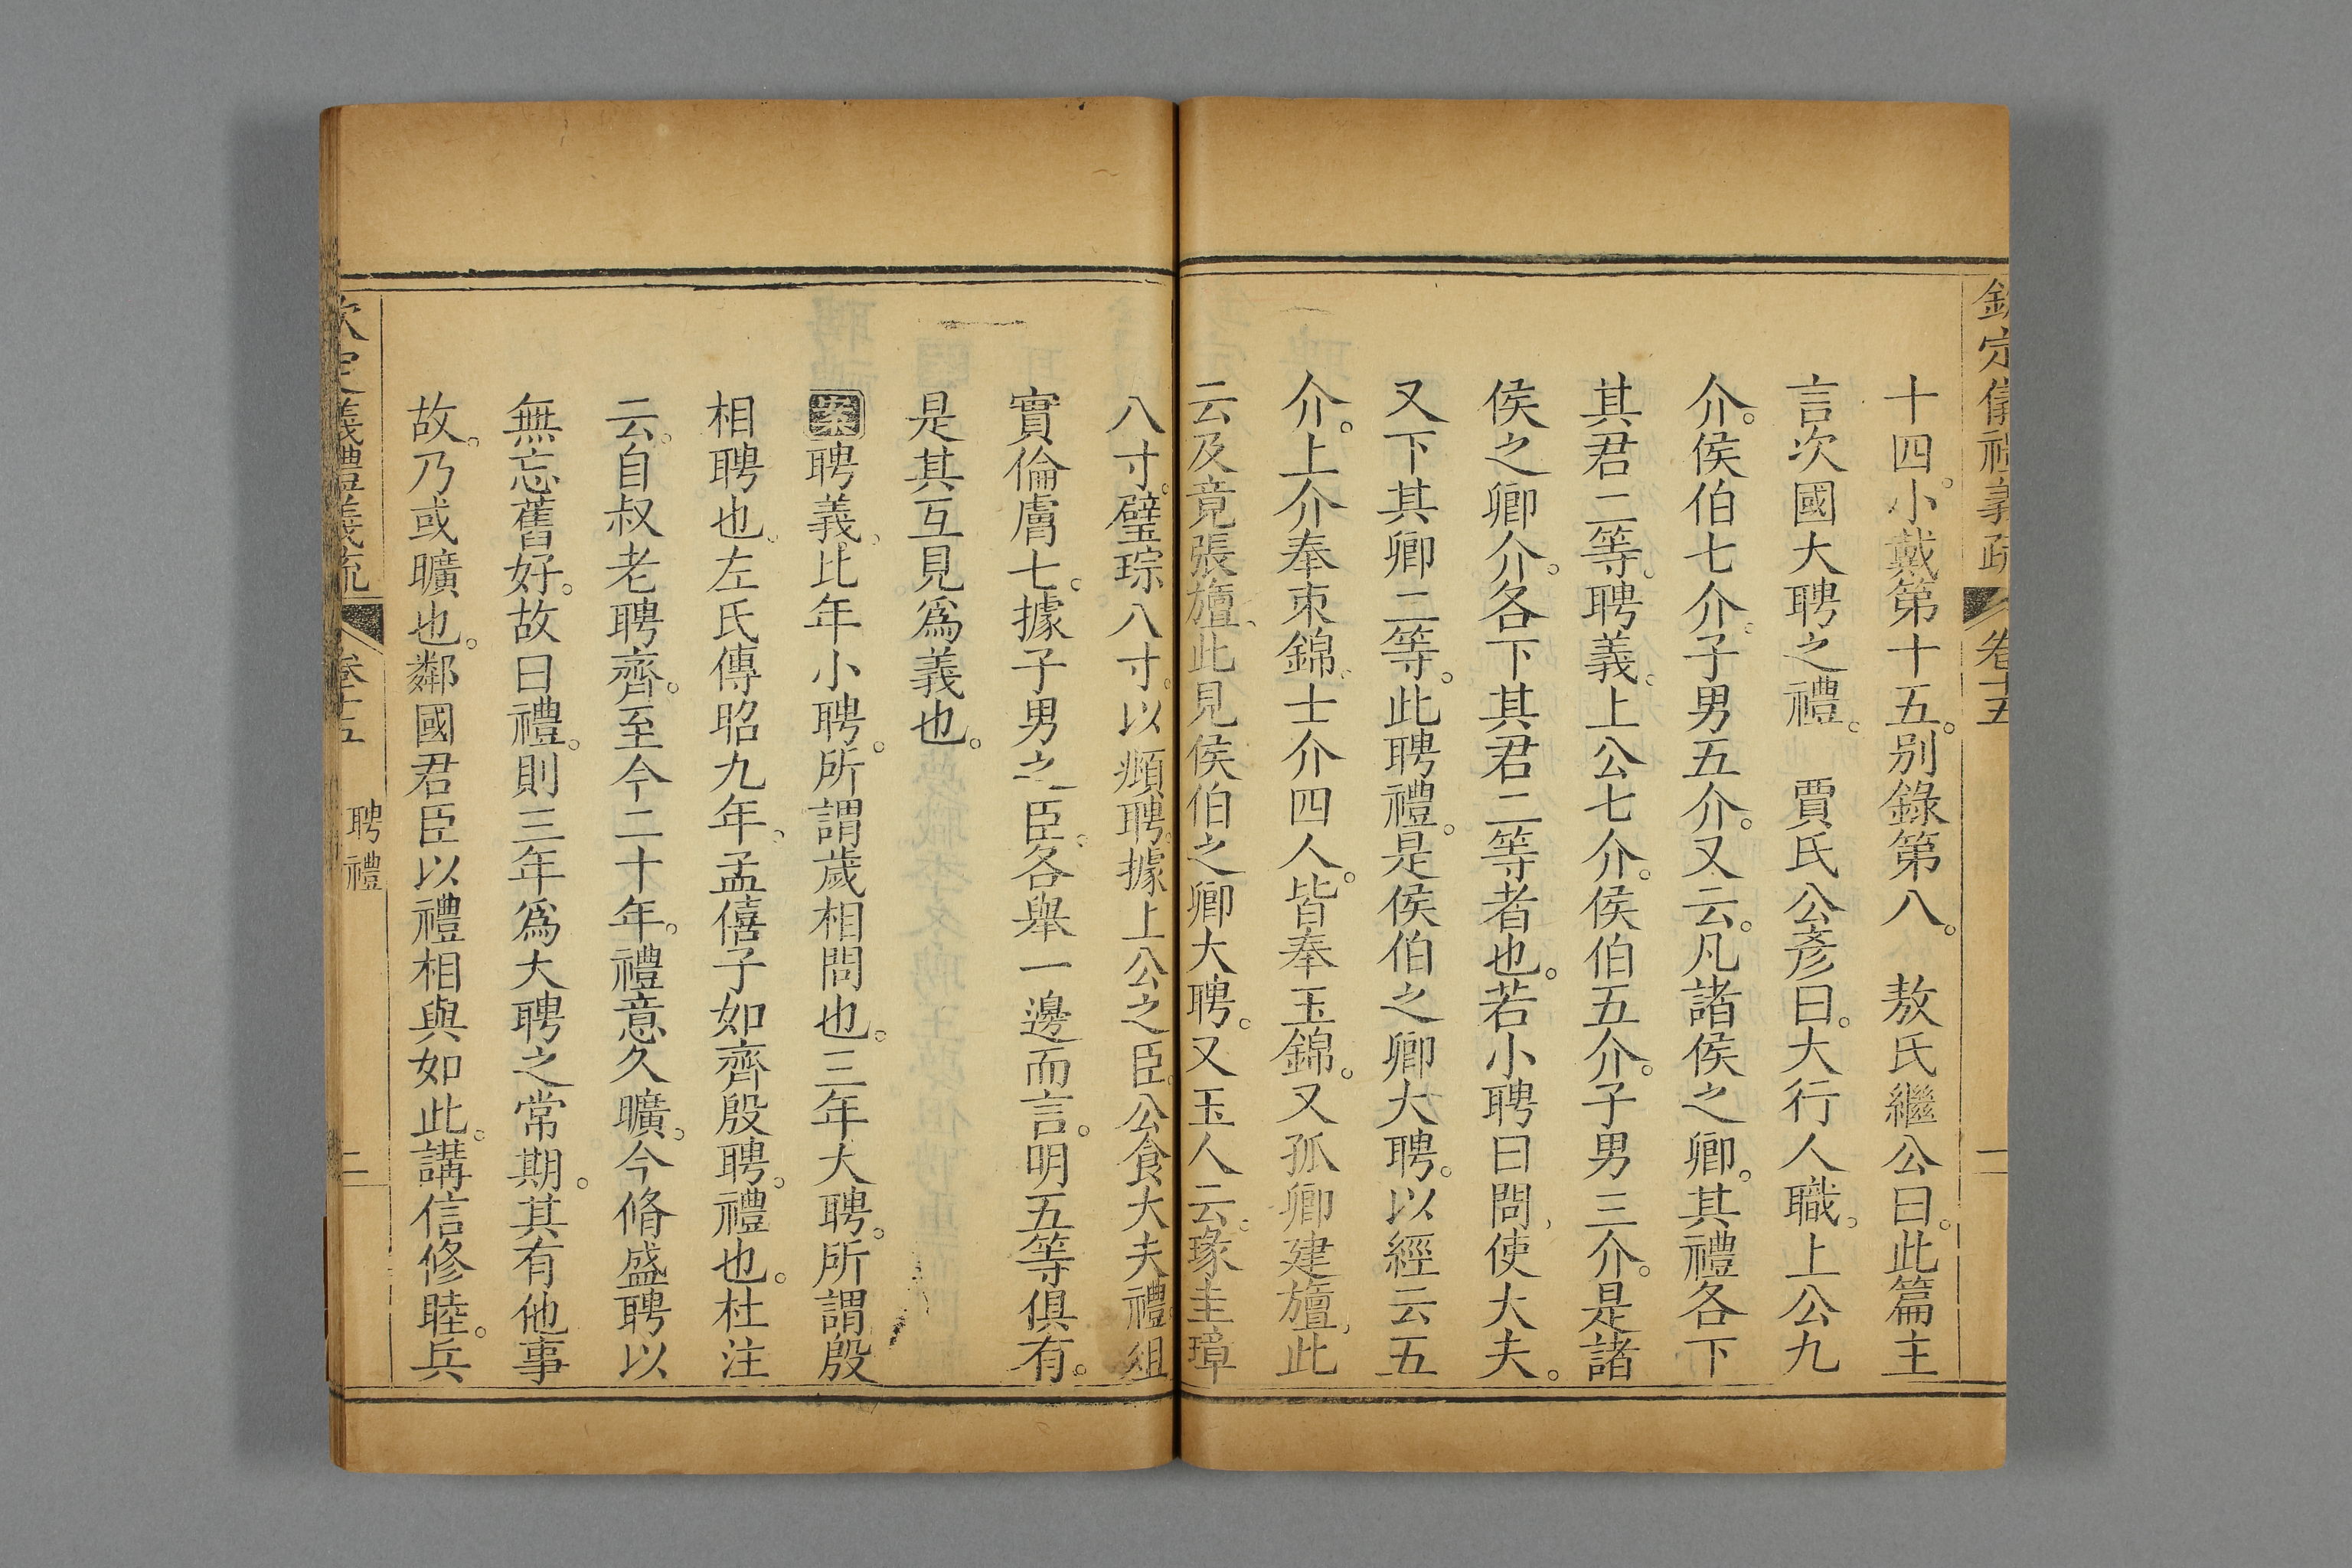 欽定儀禮義疏 卷十五 一
十四。小戴第十五。别錄第八。 敖氏繼公曰。此篇主
言次國大聘之禮。 賈氏公彥曰。大行人職。上公九
介。侯伯七介。子男五介。又云。凡諸侯之卿。其禮各下
其君二等。聘義。上公七介。侯伯五介。子男三介。是諸
侯之卿介。各下其君二等者也。若小聘曰問、使大夫。
又下其卿二等。此聘禮。是侯伯之卿大聘。以經云五
介。上介奉束錦。士介四人。皆奉玉錦。又孤卿建旜、此
云及竟張旜、此見侯伯之卿大聘。又玉人云。瑑圭璋
八寸。璧琮八寸。以頫聘。據上公之臣。公食大夫禮。俎
實倫膚七。據子男之臣。各舉一邊而言。明五等俱有。
是其互見爲義也。
案聘義。比年小聘。所謂歲相問也。三年大聘。所謂殷
相聘也。左氏傳昭九年。孟僖子如齊殷聘。禮也。杜注
云。自叔老聘齊。至今二十年。禮意久曠。今脩盛聘以
無忘舊好。故曰禮。則三年爲大聘之常期。其有他事
故。乃或曠也。鄰國君臣以禮相與如此。講信修睦。兵
欽定儀禮義疏 卷十五 聘禮 二